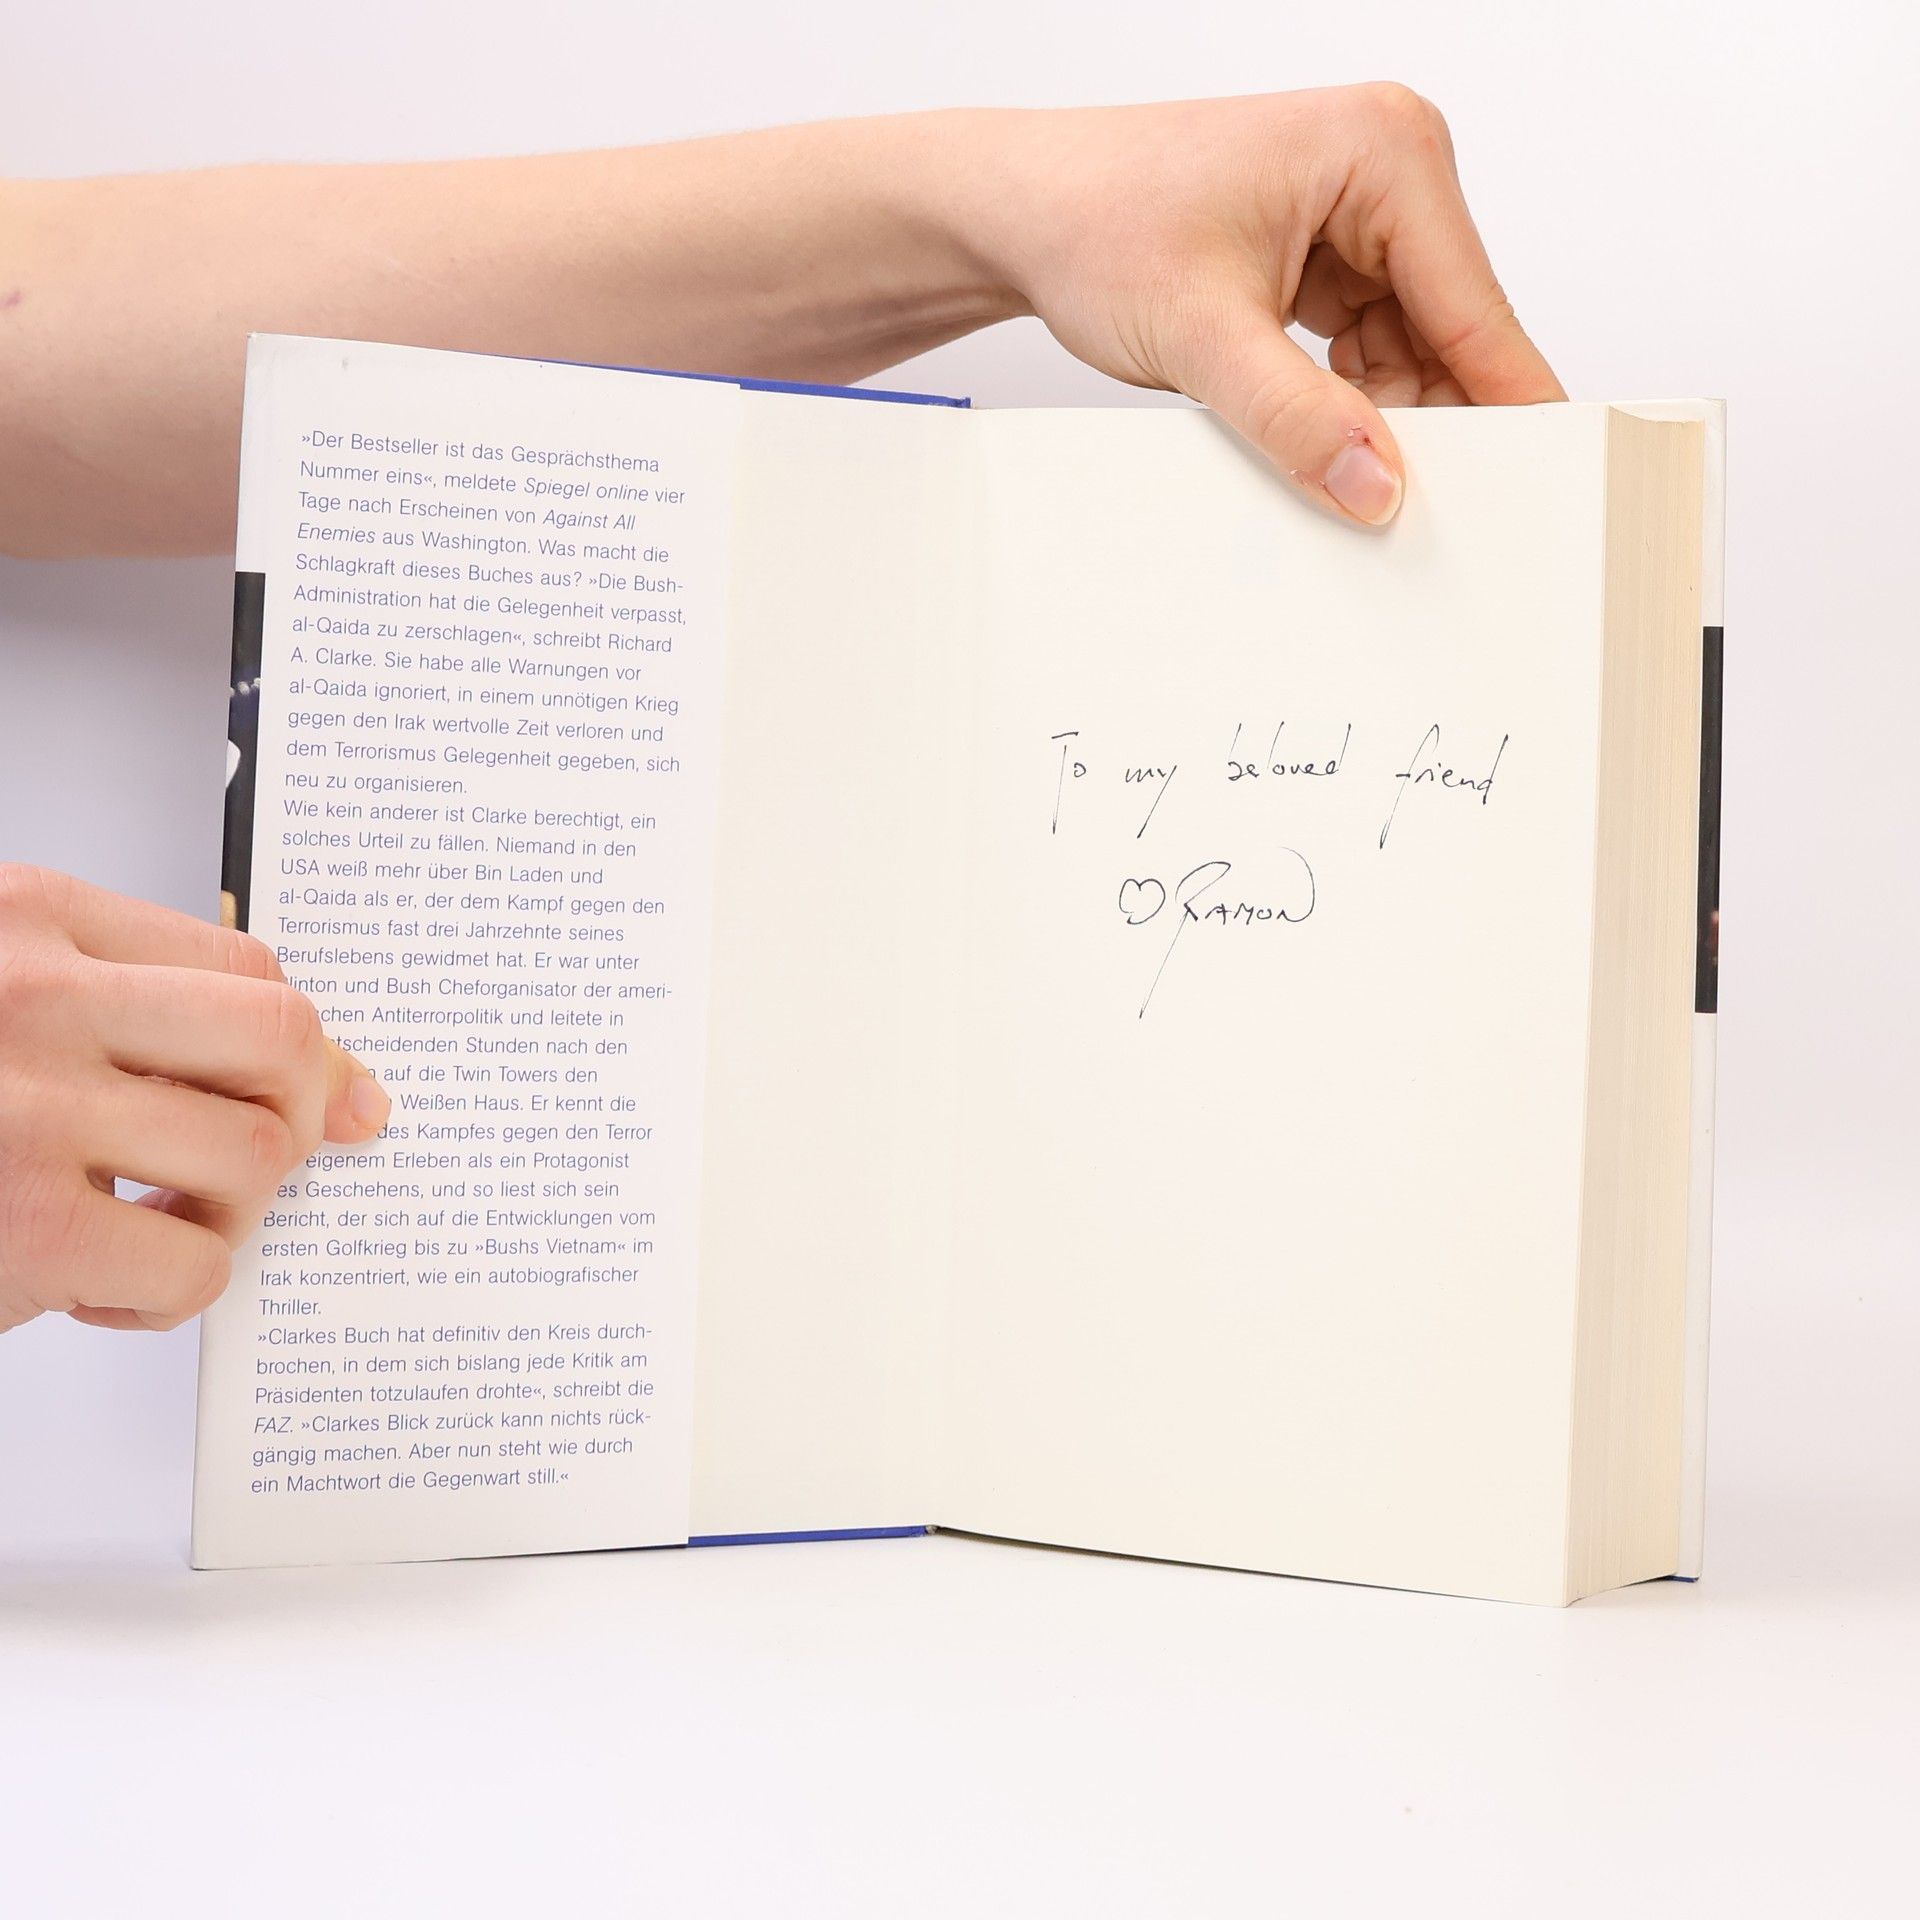 »Der Bestseller ist das Gesprächsthema
Nummer eins«, meldete Spiegel online vier
Tage nach Erscheinen von Against All
Enemies aus Washington. Was macht die
Schlagkraft dieses Buches aus? »Die Bush-
Administration hat die Gelegenheit verpasst,
al-Qaida zu zerschlagen«, schreibt Richard
A. Clarke. Sie habe alle Warnungen vor
al-Qaida ignoriert, in einem unnötigen Krieg
gegen den Irak wertvolle Zeit verloren und
dem Terrorismus Gelegenheit gegeben, sich
neu zu organisieren.
Wie kein anderer ist Clarke berechtigt, ein
solches Urteil zu fällen. Niemand in den
USA weiß mehr über Bin Laden und
al-Qaida als er, der dem Kampf gegen den
Terrorismus fast drei Jahrzehnte seines
Berufslebens gewidmet hat. Er war unter
linton und Bush Cheforganisator der ameri-
chen Antiterrorpolitik und leitete in
tscheidenden Stunden nach den
auf die Twin Towers den
Weißen Haus. Er kennt die
des Kampfes gegen den Terror
eigenem Erleben als ein Protagonist
es Geschehens, und so liest sich sein
Bericht, der sich auf die Entwicklungen vom
ersten Golfkrieg bis zu »Bushs Vietnam« im
Irak konzentriert, wie ein autobiografischer
Thriller.
»Clarkes Buch hat definitiv den Kreis durch-
brochen, in dem sich bislang jede Kritik am
Präsidenten totzulaufen drohte«, schreibt die
FAZ. »Clarkes Blick zurück kann nichts rück-
gängig machen. Aber nun steht wie durch
ein Machtwort die Gegenwart still.«
To my beloved friend
♡ RAMON